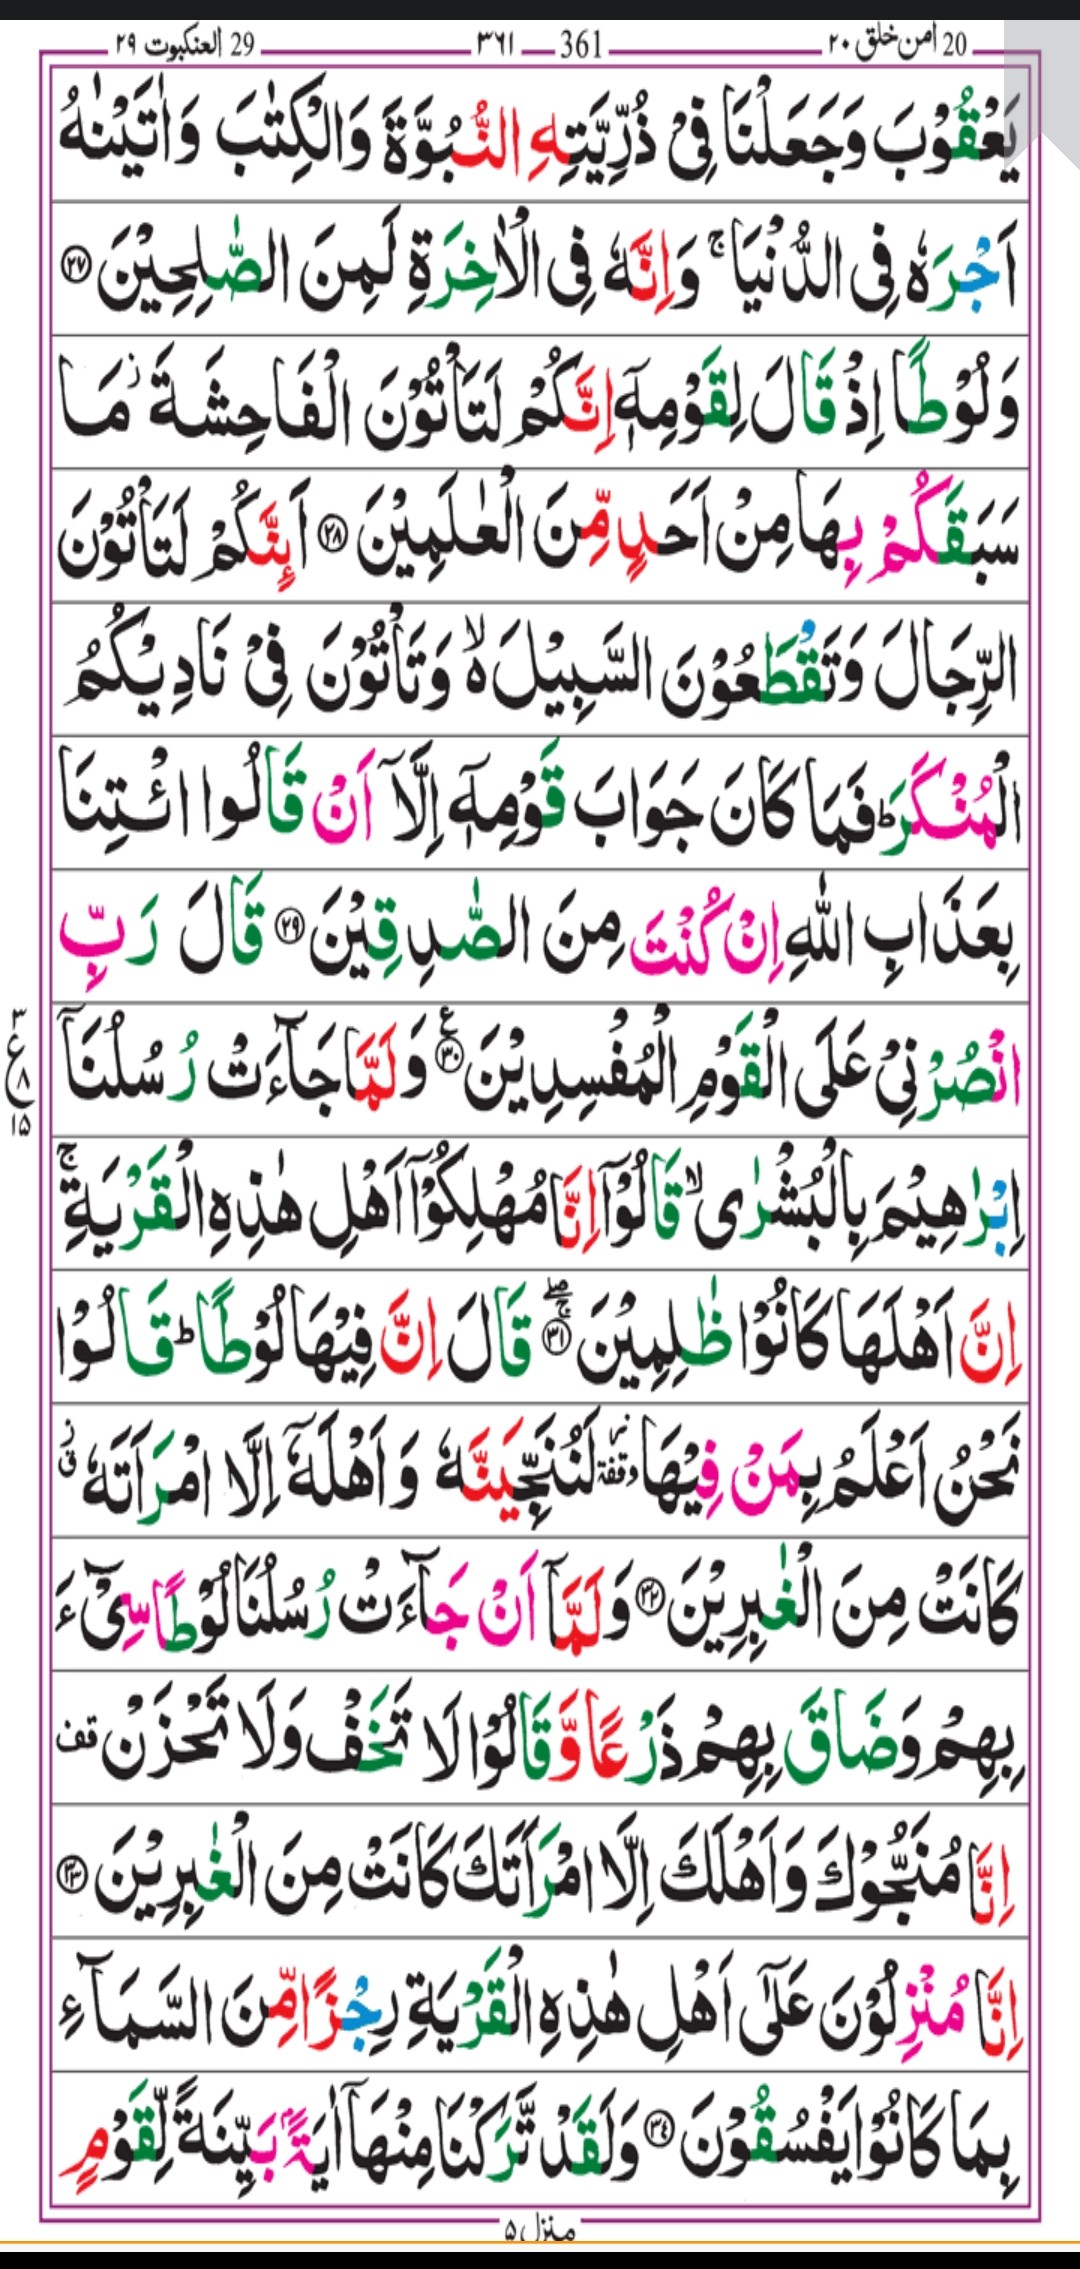 20 امن خلق ٢٠ 361 ٣٦١ 29 العنكبوت ٢٩
يَعْقُوْبَ وَجَعَلْنَا فِىْ ذُرِّيَّتِهِ النُّبُوَّةَ وَالْكِتٰبَ وَاٰتَيْنٰهُ
اَجْرَهٗ فِى الدُّنْيَا ۚ وَاِنَّهٗ فِى الْاٰخِرَةِ لَمِنَ الصّٰلِحِيْنَ ٢٧
وَلُوْطًا اِذْ قَالَ لِقَوْمِهٖۤ اِنَّكُمْ لَتَاْتُوْنَ الْفَاحِشَةَ ز مَا
سَبَقَكُمْ بِهَا مِنْ اَحَدٍ مِّنَ الْعٰلَمِيْنَ ٢٨ اَئِنَّكُمْ لَتَاْتُوْنَ
الرِّجَالَ وَتَقْطَعُوْنَ السَّبِيْلَ ۙ۬ وَتَاْتُوْنَ فِىْ نَادِيْكُمُ
الْمُنْكَرَ ؕ فَمَا كَانَ جَوَابَ قَوْمِهٖۤ اِلَّاۤ اَنْ قَالُوا ائْتِنَا
بِعَذَابِ اللّٰهِ اِنْ كُنْتَ مِنَ الصّٰدِقِيْنَ ٢٩ قَالَ رَبِّ
انْصُرْنِىْ عَلَى الْقَوْمِ الْمُفْسِدِيْنَ ٣٠ ع وَلَمَّا جَآءَتْ رُسُلُنَاۤ
٣
ع
٨
١٥
اِبْرٰهِيْمَ بِالْبُشْرٰى ۙ قَالُوْۤا اِنَّا مُهْلِكُوْۤا اَهْلِ هٰذِهِ الْقَرْيَةِ ۚ
اِنَّ اَهْلَهَا كَانُوْا ظٰلِمِيْنَ ٣١ ۚۖ قَالَ اِنَّ فِيْهَا لُوْطًا ؕ قَالُوْا
نَحْنُ اَعْلَمُ بِمَنْ فِيْهَا ز وقفة لَنُنَجِّيَنَّهٗ وَاَهْلَهٗۤ اِلَّا امْرَاَتَهٗ ز ق
كَانَتْ مِنَ الْغٰبِرِيْنَ ٣٢ وَلَمَّاۤ اَنْ جَآءَتْ رُسُلُنَا لُوْطًا سِىْٓءَ
بِهِمْ وَضَاقَ بِهِمْ ذَرْعًا وَّقَالُوْا لَا تَخَفْ وَلَا تَحْزَنْ قف
اِنَّا مُنَجُّوْكَ وَاَهْلَكَ اِلَّا امْرَاَتَكَ كَانَتْ مِنَ الْغٰبِرِيْنَ ٣٣
اِنَّا مُنْزِلُوْنَ عَلٰٓى اَهْلِ هٰذِهِ الْقَرْيَةِ رِجْزًا مِّنَ السَّمَآءِ
بِمَا كَانُوْا يَفْسُقُوْنَ ٣٤ وَلَقَدْ تَّرَكْنَا مِنْهَاۤ اٰيَةًۢ بَيِّنَةً لِّقَوْمٍ
منزل ٥